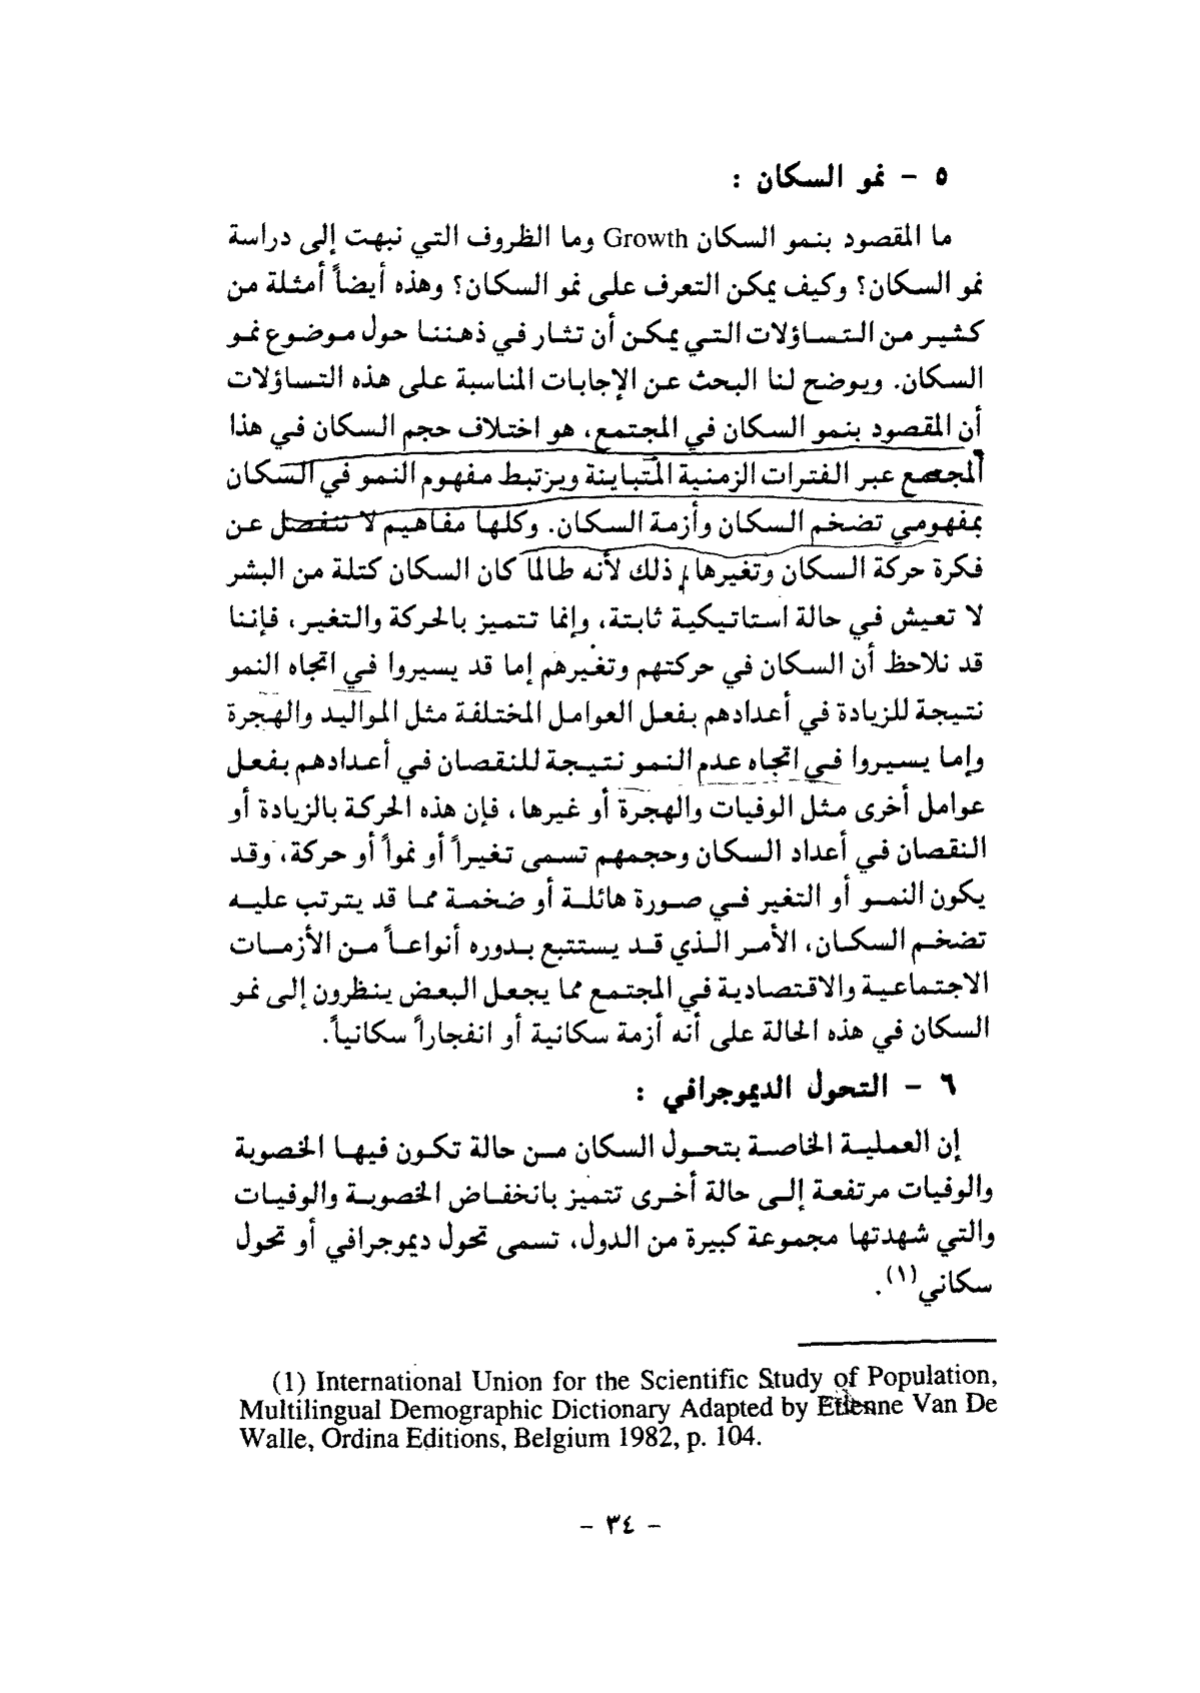 ٥ - نمو السكان :
ما المقصود بنمو السكان Growth وما الظروف التي نبهت إلى دراسة
نمو السكان؟ وكيف يمكن التعرف على نمو السكان؟ وهذه أيضاً أمثلة من
كثير من التساؤلات التي يمكن أن تثار في ذهننا حول موضوع نمو
السكان. ويوضح لنا البحث عن الإجابات المناسبة على هذه التساؤلات
أن المقصود بنمو السكان في المجتمع، هو اختلاف حجم السكان في هذا
المجتمع عبر الفترات الزمنية المتباينة ويرتبط مفهوم النمو في السكان
بمفهومي تضخم السكان وأزمة السكان. وكلها مفاهيم لا تنفصل عن
فكرة حركة السكان وتغيرها، ذلك لأنه طالما كان السكان كتلة من البشر
لا تعيش في حالة استاتيكية ثابتة، وإنما تتميز بالحركة والتغير، فإننا
قد نلاحظ أن السكان في حركتهم وتغيرهم إما قد يسيروا في اتجاه النمو
نتيجة للزيادة في أعدادهم بفعل العوامل المختلفة مثل المواليد والهجرة
وإما يسيروا في اتجاه عدم النمو نتيجة للنقصان في أعدادهم بفعل
عوامل أخرى مثل الوفيات والهجرة أو غيرها، فإن هذه الحركة بالزيادة أو
النقصان في أعداد السكان وحجمهم تسمى تغيراً أو نمواً أو حركة، وقد
يكون النمو أو التغير في صورة هائلة أو ضخمة مما قد يترتب عليه
تضخم السكان، الأمر الذي قد يستتبع بدوره أنواعاً من الأزمات
الاجتماعية والاقتصادية في المجتمع مما يجعل البعض ينظرون إلى نمو
السكان في هذه الحالة على أنه أزمة سكانية أو انفجاراً سكانياً.
٦ - التحول الديموجرافي :
إن العملية الخاصة بتحول السكان من حالة تكون فيها الخصوبة
والوفيات مرتفعة إلى حالة أخرى تتميز بانخفاض الخصوبة والوفيات
والتي شهدتها مجموعة كبيرة من الدول، تسمى تحول ديموجرافي أو تحول
سكاني(١).
(1) International Union for the Scientific Study of Population,
Multilingual Demographic Dictionary Adapted by Etienne Van De
Walle, Ordina Editions, Belgium 1982, p. 104.
- ٣٤ -